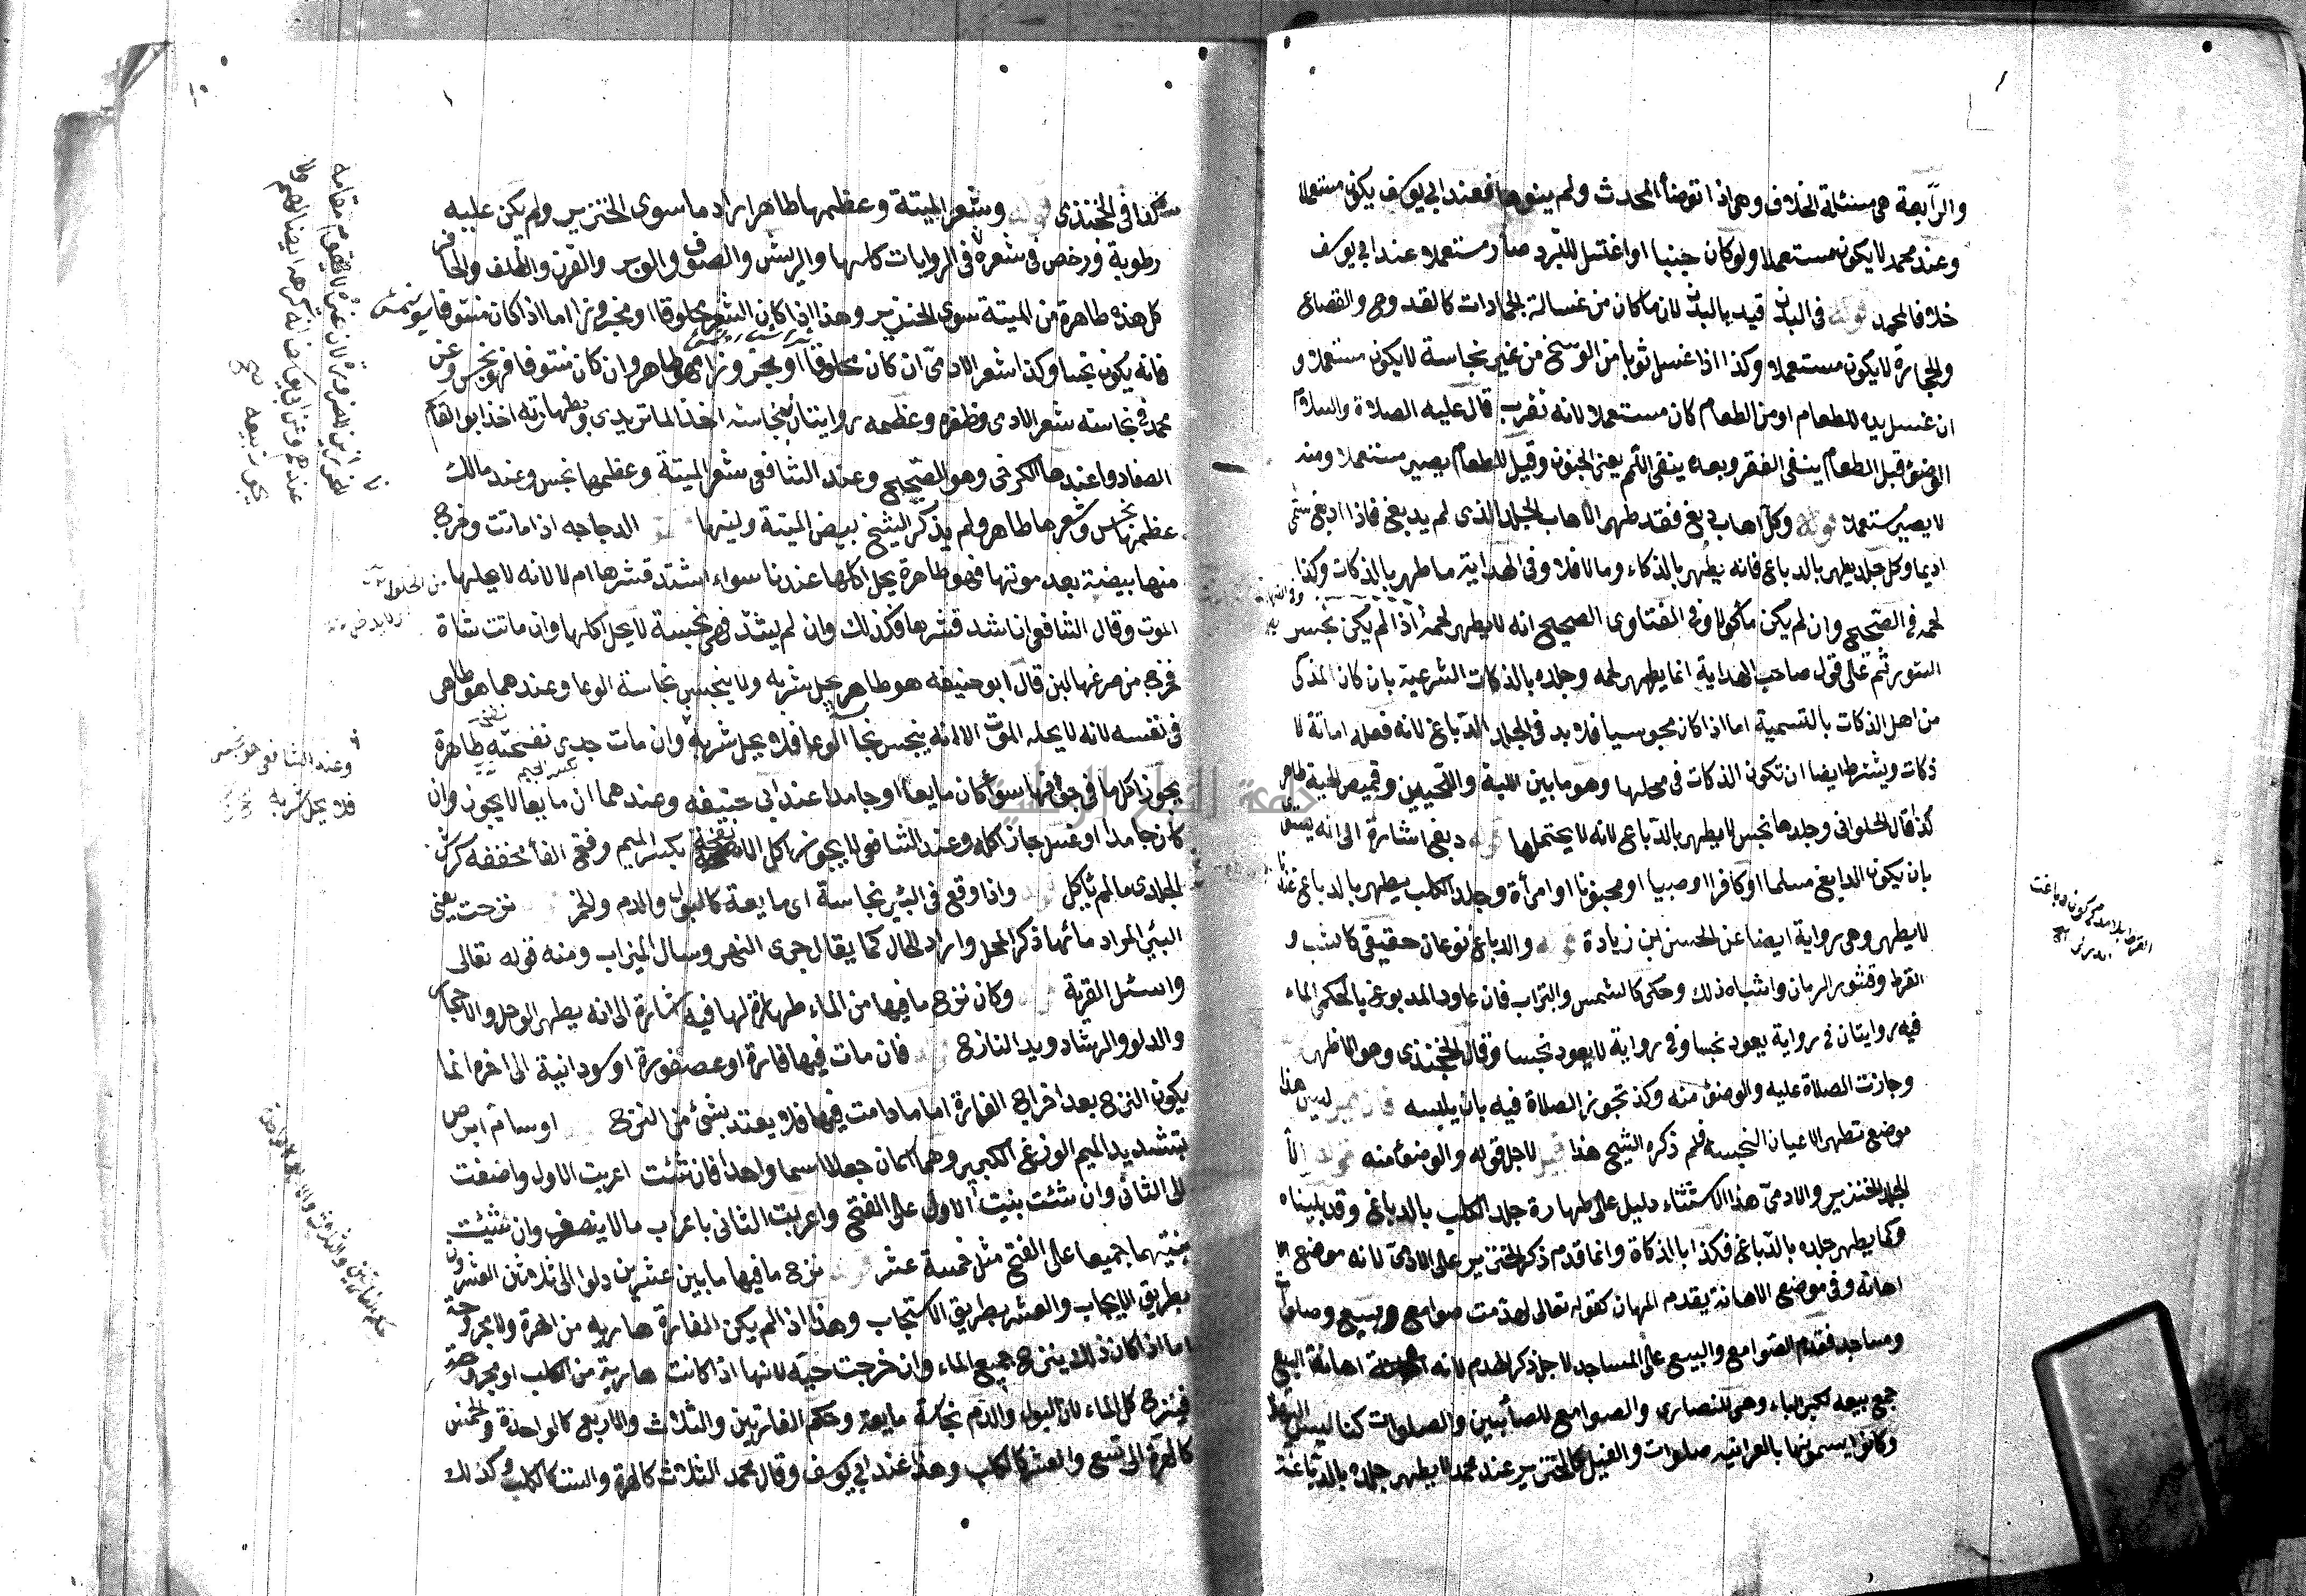 والرابعة هي مسئلة الخلاف وهي اذا توضأ المحدث ولم ينوها فعند ابي يوسف يكون مستعملا
وعند محمد لا يكون مستعملا ولو كان جنبا او اغتسل للتبرد صار مستعملا عند ابي يوسف
خلافا لمحمد قوله في البدن قيد بالبدن لان ما كان من غسالة الجمادات كالقدور والقصاع
والحجارة لا يكون مستعملا وكذا اذا غسل ثوبا من الوسخ من غير نجاسة لا يكون مستعملا و
ان غسل يده للطعام او من الطعام كان مستعملا لانه تقرب قال عليه الصلاة والسلام
الوضوء قبل الطعام ينفي الفقر وبعده ينفي اللمم يعني الجنون وقيل للطعام يصير مستعملا ومنه
لا يصير مستعملا قوله وكل اهاب دبغ فقد طهر الاهاب الجلد الذي لم يدبغ فاذا ادبغ سمي
اديما وكل جلد يطهر بالدباغ فانه يطهر بالذكاء وما لا فلا وفي الهداية ما طهر بالذكات وكذا
لحمه في الصحيح وان لم يكن مأكولا وفي الفتاوى الصحيح انه لا يطهر لحمه اذا لم يكن نجس
السور ثم على قول صاحب الهداية انما يطهر لحمه وجلده بالذكات الشرعية بان كان المذكى
من اهل الذكات بالتسمية اما اذا كان مجوسيا فلا بد في الجلد الدباغ لانه فعله اماتة لا
ذكات ويشترط ايضا ان تكون الذكات في محلها وهو ما بين اللبة واللحيين وقميص الحية طاهر
كذا قال الحلواني وجلدها نجس لا يطهر بالدباغ لانه لا يحتملها قوله دبغ اشارة الى انه يستوي
بان يكون الدابغ مسلما او كافرا او صبيا او مجنونا او امرأة وجلد الكلب يطهر بالدباغ عندنا
لا يطهر وهي رواية ايضا عن الحسن ابن زيادة والدباغ نوعان حقيقي كالشب و
القرظ وقشور الرمان واشباه ذلك وحكمي كالشمس والتراب فان عاود المدبوغ بالحكمي الماء
فيه روايتان في رواية يعود نجسا وفي رواية لا يعود نجسا وقال الخجندي وهو الاظهر
وجازت الصلاة عليه والوضوء منه وكذا تجوز الصلاة فيه بان يلبسه فان قيل ليس هذا
موضع تطهر الاعيان النجسة فلم ذكره الشيخ هذا قيل لاجل قوله والوضوء منه قوله الا
الجلد الخنزير والادمي هذا الاستثناء دليل على طهارة جلد الكلب بالدباغ وقد بيناه
وكما يطهر جلده بالدباغ فكذا بالذكاة وانما قدم ذكر الخنزير على الادمي لانه موضع
اهانه وفي موضع الاهانة يقدم المهان كقوله تعالى لهدمت صوامع وبيع وصلوات
ومساجد فقدم الصوامع والبيع على المساجد لاجل ذكر الهدم لانه اهانة البيع
جمع بيعه بكسر الباء وهي للنصارى والصوامع للصابئين والصلوات كنايس اليهود
وكانوا يسمونها بالعبرانيه صلوات والفيل كالخنزير عند محمد لا يطهر جلده بالدباغة
كذا في الخجندي قوله وشعر الميتة وعظمها طاهر اراد ما سوى الخنزير ولم يكن عليه
رطوبة ورخص في شعره في الروايات كلها والريش والصوف والوبر والقرن والظلف والحافر
كل هذه طاهرة من الميتة سوى الخنزير وهذا اذا كان الشعر محلوقا او مجزوزا اما اذا كان منتوفا
فانه يكون نجسا وكذا شعر الادمي ان كان محلوقا او مجزوزا فهو طاهر وان كان منتوفا فهو نجس وعن
محمد في نجاسة شعر الادمي وظفره وعظمه روايتان بنجاسته اخذ الماتريدي وبطهارته اخذ ابو القاسم
الصفار واعتمدها الكرخي وهو الصحيح وعند الشافعي شعر الميتة وعظمها نجس وعند مالك
عظمها نجس وشعرها طاهر ولم يذكر الشيخ بيض الميتة ولبنها الدجاجه اذا ماتت وخرج
منها بيضة بعد موتها فهو طاهرة يحل اكلها عندنا سواء اشتد قشرها ام لا لانه لا يحلها
الموت وقال الشافعي ان اشتد قشرها فكذلك وان لم يشتد فهي نجسة لا يحل اكلها وان ماتت شاة
فخرج من ضرعها لبن قال ابو حنيفه هو طاهر يحل شربه ولا يتنجس بنجاسة الوعا وعندهما هو طاهر
في نفسه لانه لا يحله الموت الا انه ينجس بنجاسة الوعا فلا يحل شربه وان مات جدي نفحته طاهرة
يجوز اكل ما في جوفها سوأ كان مايعا او جامدا عند ابي حنيفه وعندهما ان مايعا لا يجوز وان
كان جامدا او غسل جاز اكله وعند الشافعي لا يجوز اكل بكسر الميم وفتح الفا مخففه كرش
الجدي ما لم يأكل قوله واذا وقع في البير نجاسة اي مايعة كالبول والدم والخمر نزحت يعني
البير المراد مائها ذكر المحل واراد الحال كما يقال جرى النهر وسال الميزاب ومنه قوله تعالى
واسئل القرية وكان نزح ما فيها من الماء طهارة لها فيه اشارة الى انه يطهر الوحل والاحجار
والدلو والرشاد ويد النازح فان مات فيها فارة او عصفورة او سودانية الى اخره انما
يكون النزح بعد اخراج الفارة اما ما دامت فيها فلا يعتد بشئ من النزح او سام ابرص
بتشديد الميم الوزغ الكبير وهما اسمان جعلا اسما واحدا فان شئت اعربت الاول واضفت
الى الثاني وان شئت بنيت الاول على الفتح واعربت الثاني باعراب ما لا ينصرف وان شئت
بنيتهما جميعا على الفتح مثل خمسة عشر قوله نزح ما فيها ما بين عشرين دلوا الى ثلاثين العشرون
بطريق الايجاب والعشر بطريق الاستحباب وهذا اذا لم يكن الفارة هاربه من الهرة ولا مجروحة
اما اذا كان كذلك ينزح جميع الماء وان خرجت حيه لانها اذا كانت هاربة من الكلب او مجروحة
فينزح كل الماء لان البول والدم نجاسة مايعة وحكم الفارتين والثلاث والاربع كالواحدة والخمس
كالهرة الى تسع والعشر كالكلب وهذا عند ابي يوسف وقال محمد الثلاث كالهرة والست كالكلب وكذلك
وعند الشافعي هو نجس
فلا يحل شربه